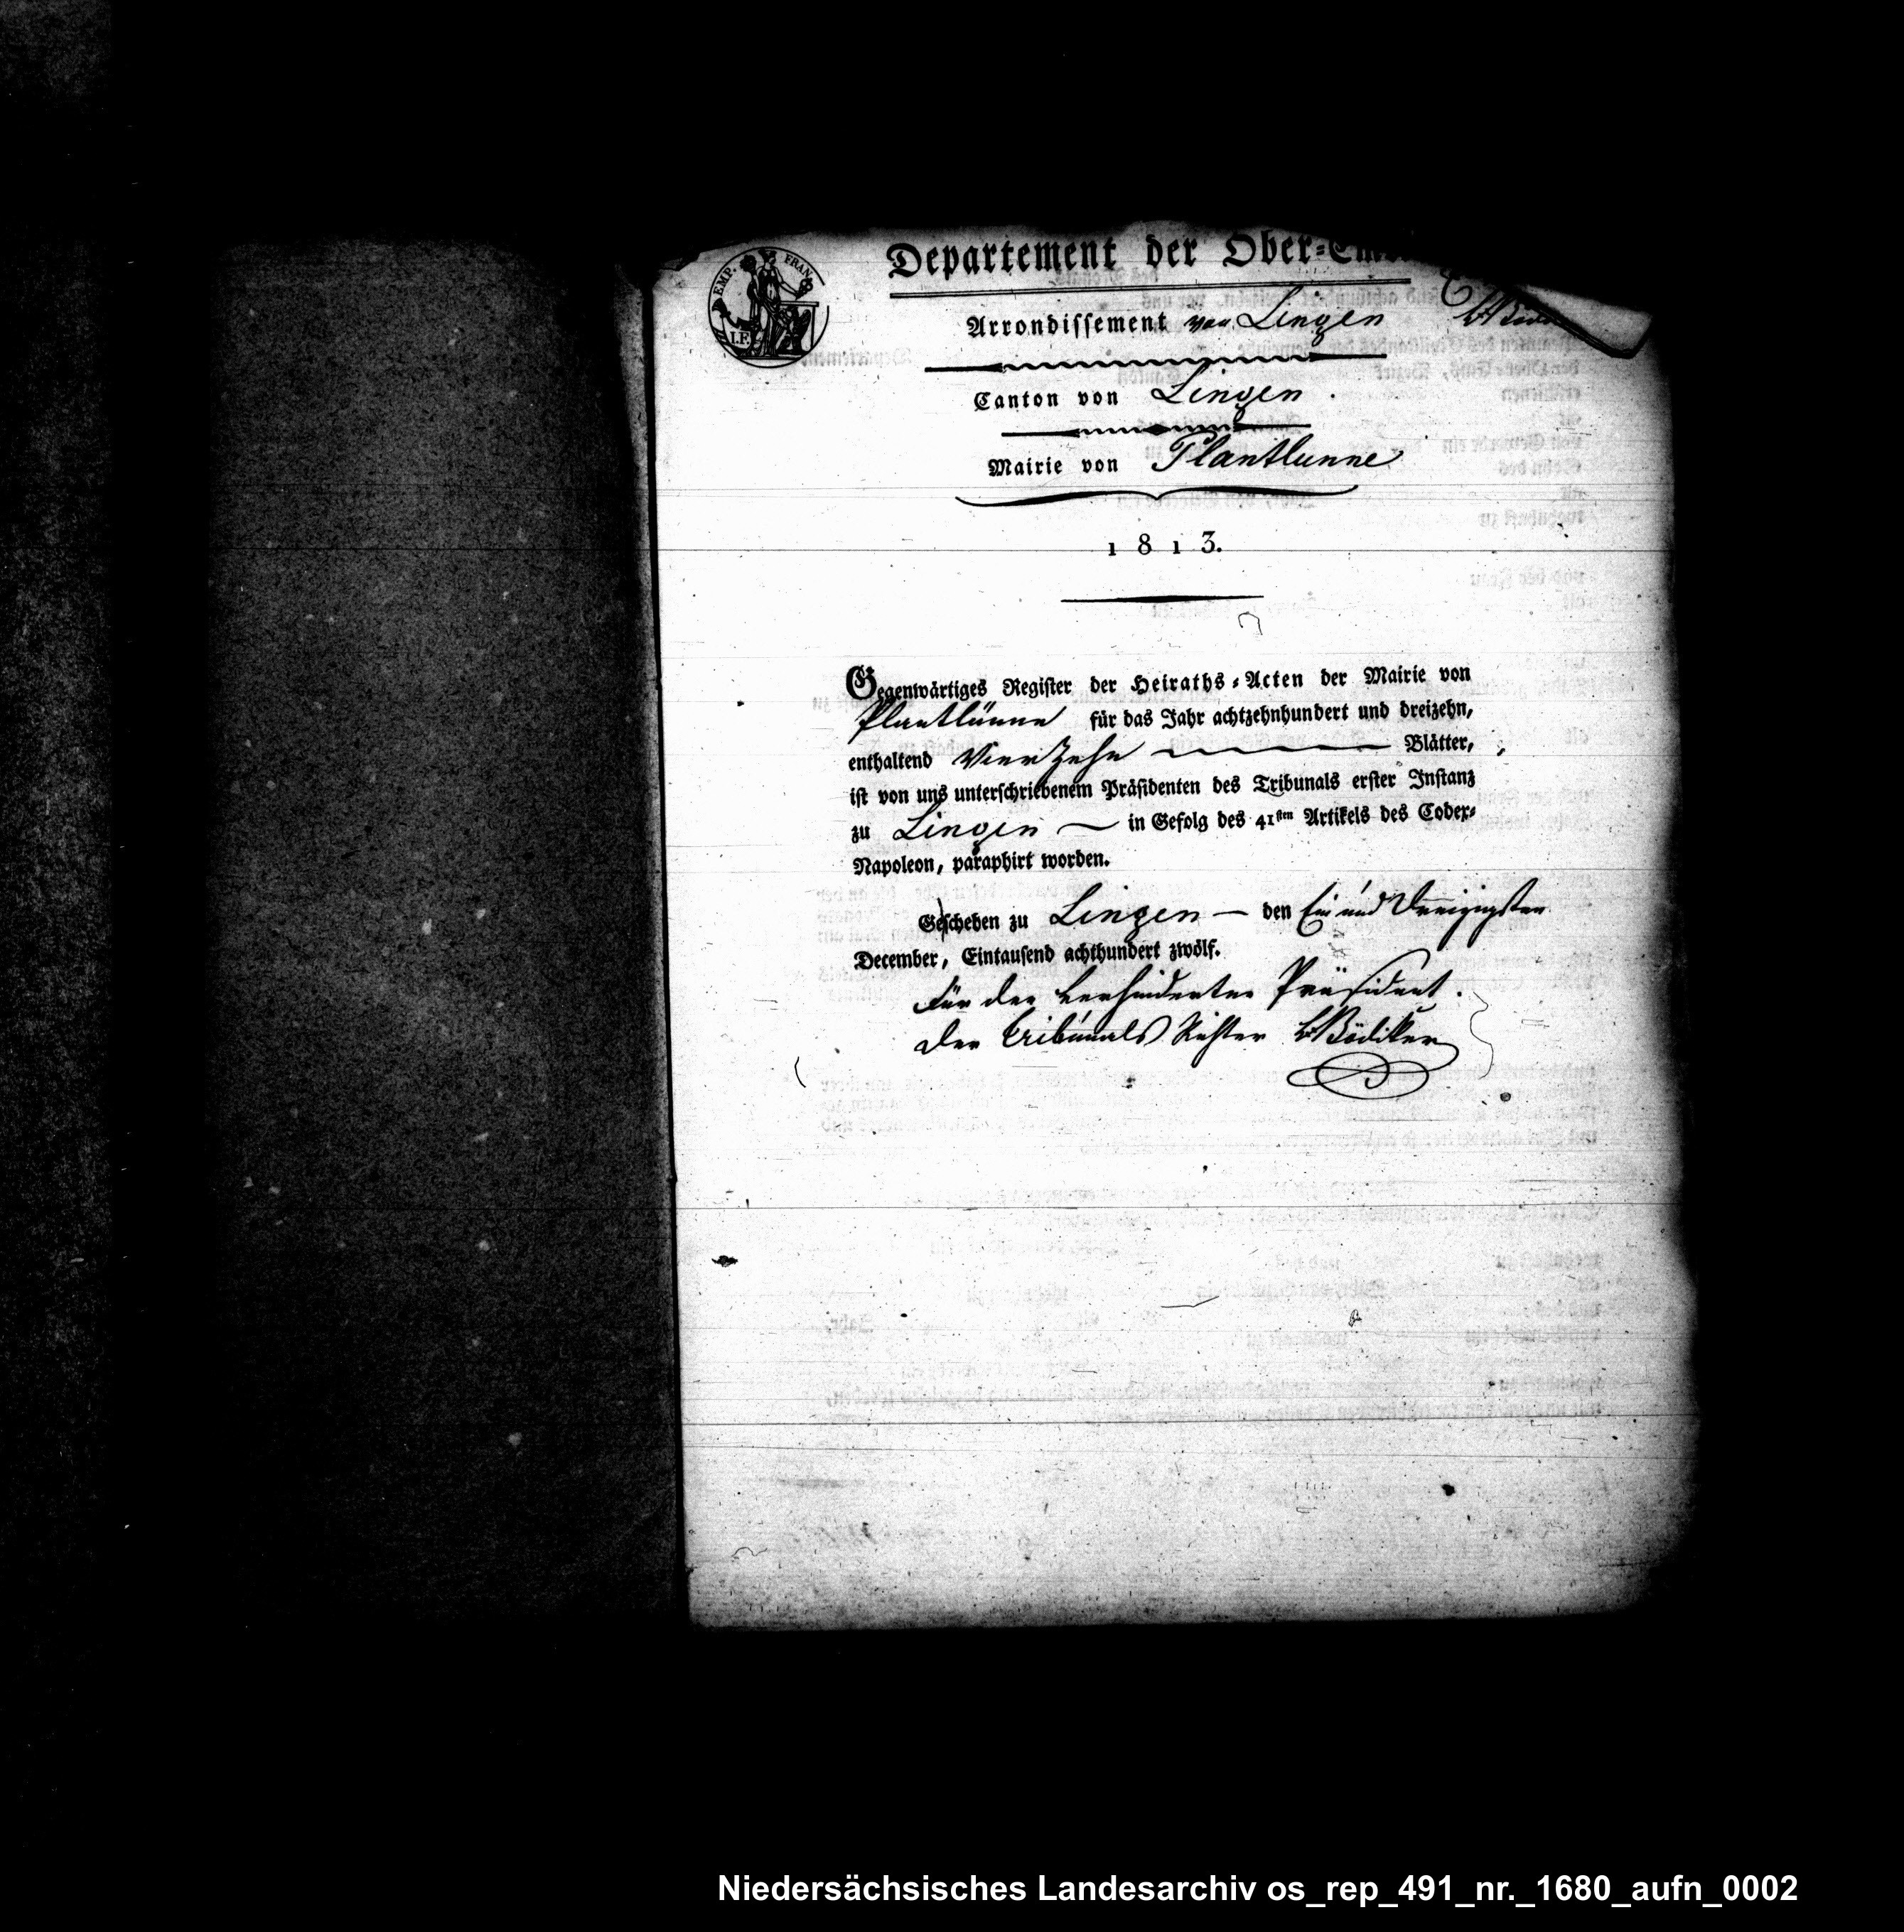 EMP. FRAN
I.F.
Departement der Ober-Em
Arrondissement von Lingen
Canton von Lingen.
Mairie von Plantlunne
1813.
Gegenwärtiges Register der Heiraths-Acten der Mairie von
Plantlünne für das Jahr achtzehnhundert und dreizehn,
enthaltend Vierzehn Blätter,
ist von uns unterschriebenem Präsidenten des Tribunals erster Instanz
zu Lingen — in Gefolg des 41sten Artikels des Codex-
Napoleon, paraphirt worden.
Geschehen zu Lingen — den Ein und Dreizigsten
December, Eintausend achthundert zwölf.
Für den verhinderten Präsident.
Der Tribunals Richter Bödiker
Niedersächsisches Landesarchiv os_rep_491_nr._1680_aufn_0002